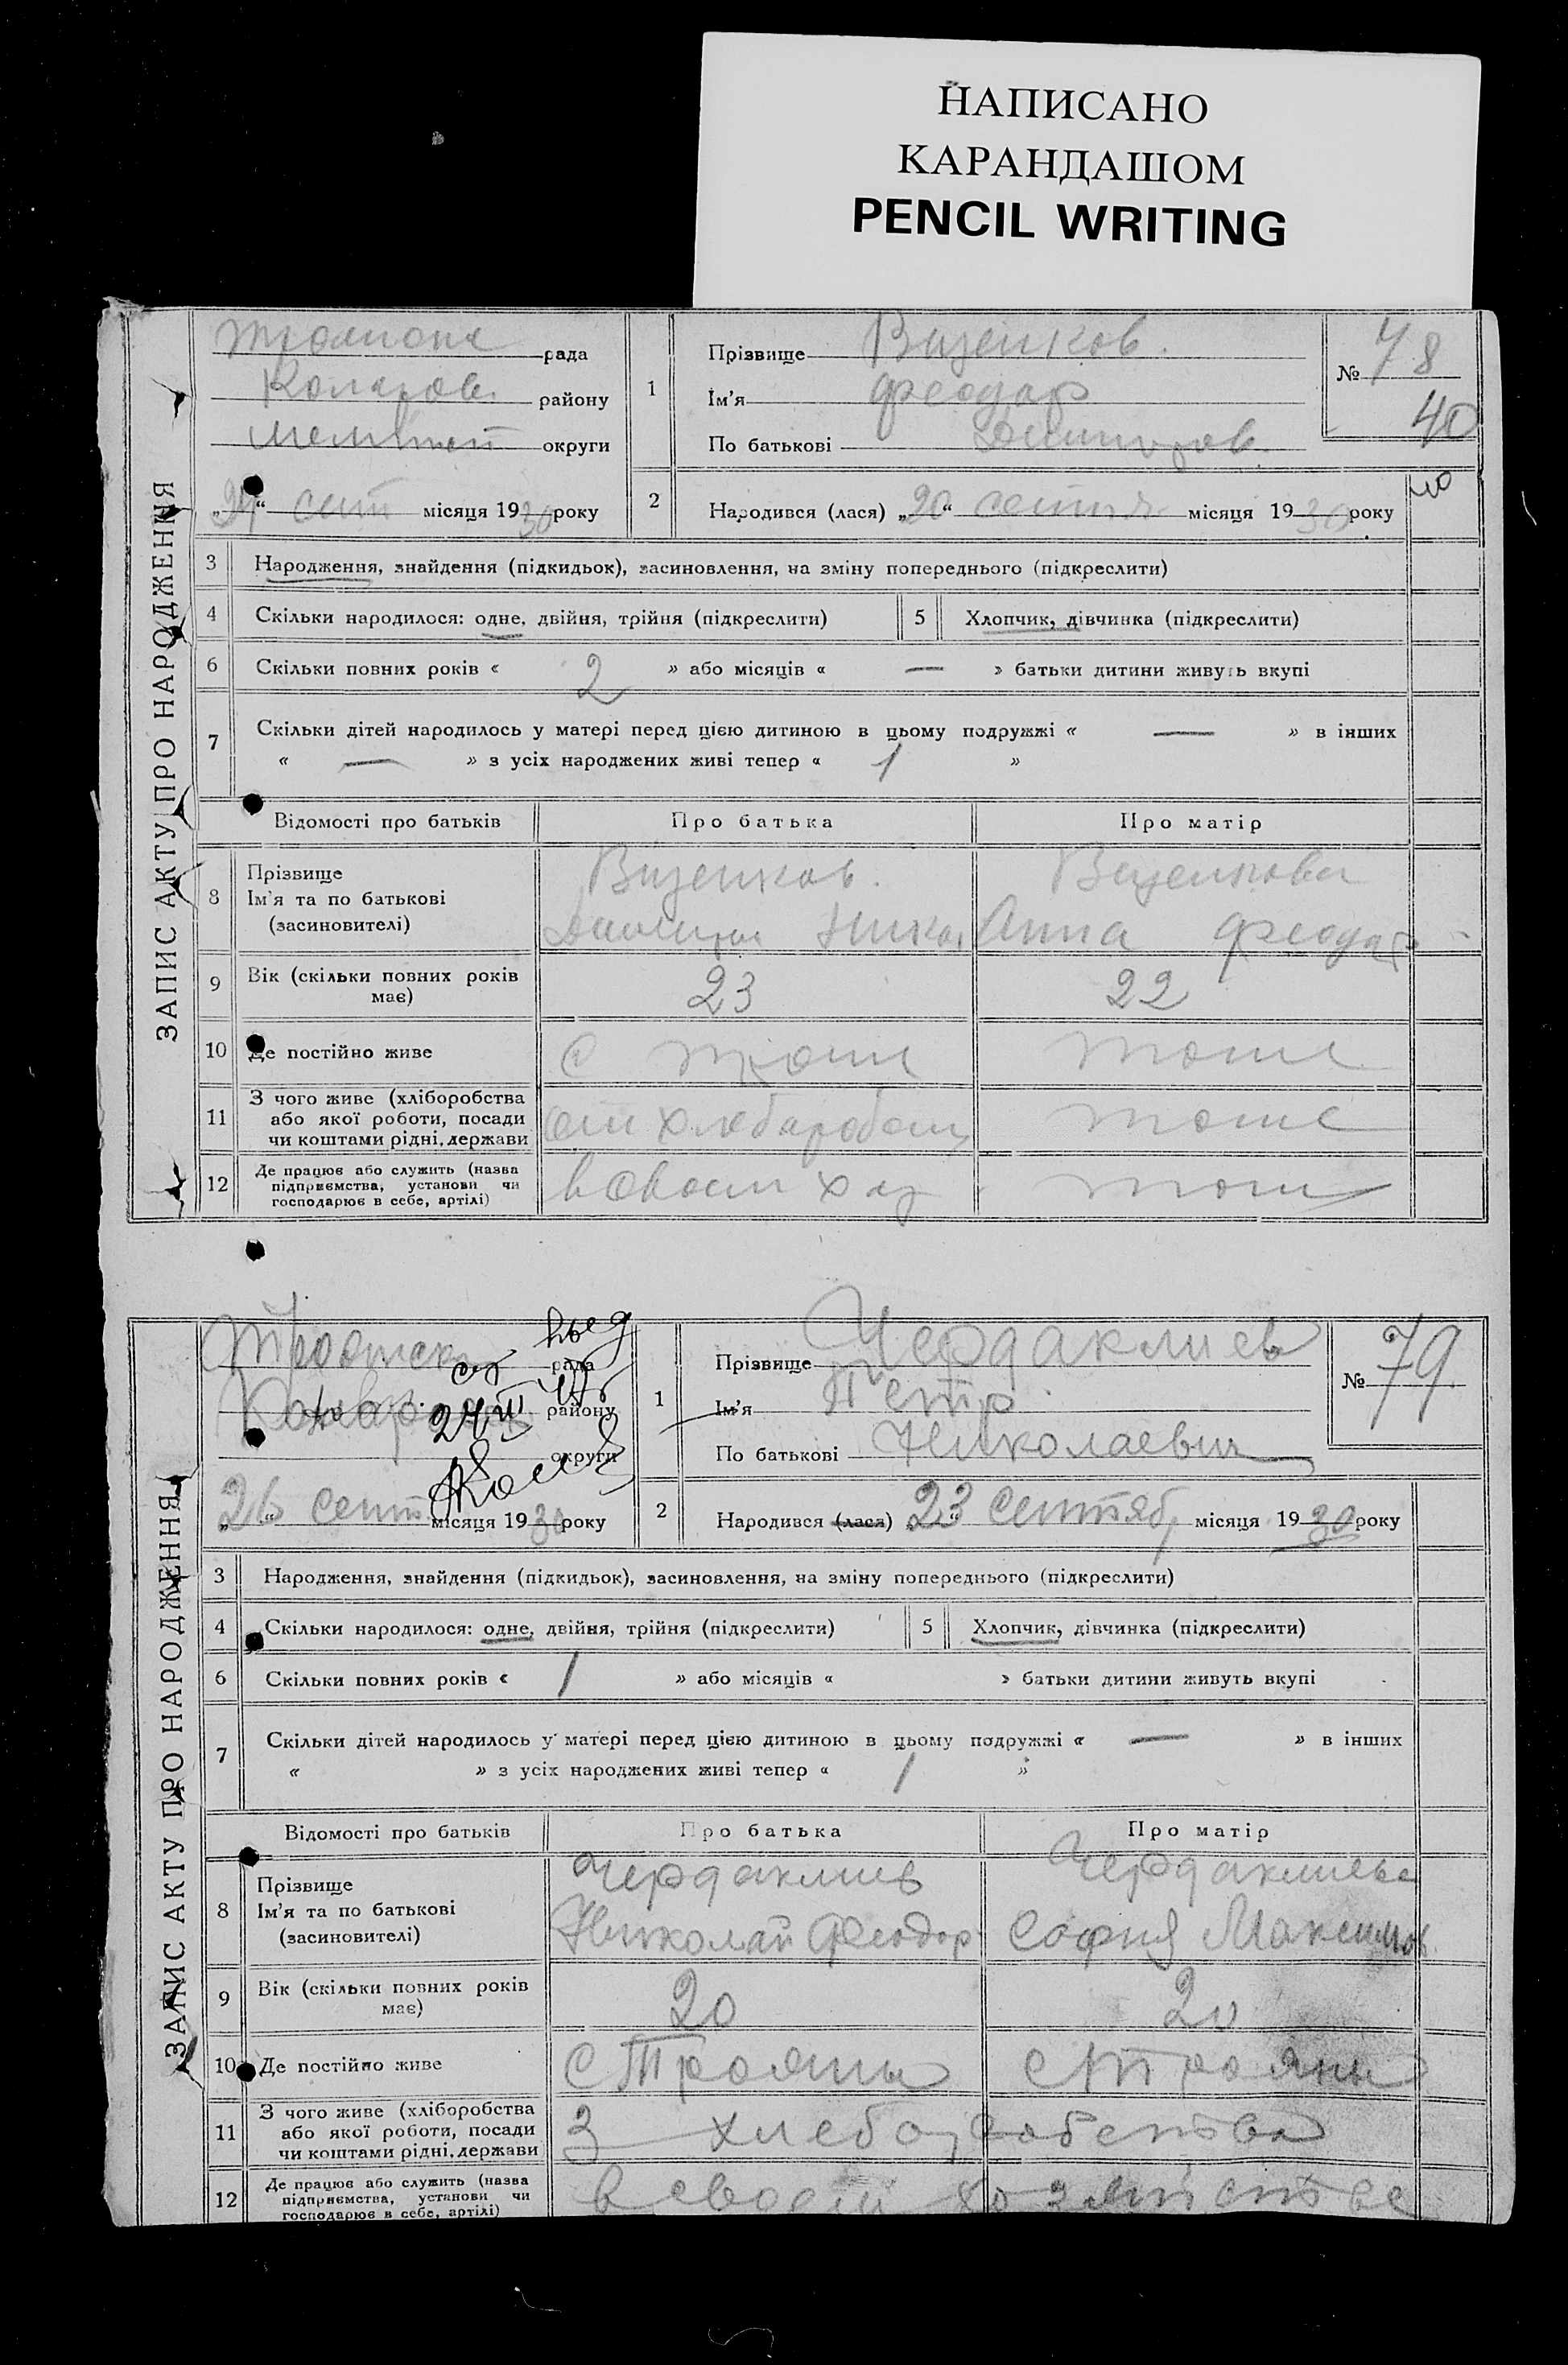 НАПИСАНО
КАРАНДАШОМ
PENCIL WRITING
ЗАПИС АКТУ ПРО НАРОДЖЕННЯ
рада
Коларов. району
округи
1
Прізвище
Ім'я Феодор
По батькові
№ 78
40
сент місяця 1930 року
2
Народився (лася) „20“ сентя. місяця 1930 року
3 Народження, знайдення (підкидьок), засиновлення, на зміну попереднього (підкреслити)
4 Скільки народилося: одне, двійня, трійня (підкреслити) 5 Хлопчик, дівчинка (підкреслити)
6 Скільки повних років « 2 » або місяців « — » батьки дитини живуть вкупі
7 Скільки дітей народилось у матері перед цією дитиною в цьому подружжі « — » в інших
« — » з усіх народжених живі тепер « 1 »
Відомості про батьків Про батька Про матір
8 Прізвище
Ім'я та по батькові Анна Феодор
(засиновителі)
9 Вік (скільки повних років має) 23 22
10 Де постійно живе с тоже
11 З чого живе (хліборобства або якої роботи, посади чи коштами рідні, держави от тоже
12 Де працює або служить (назва підприємства, установи чи господарює в себе, артілі) в своем хоз
ЗАПИС АКТУ ПРО НАРОДЖЕННЯ
рада
району
округи
1
Прізвище Чердаклиев
Ім'я Петр
По батькові Николаевич
№ 79
„26“ сент місяця 1930 року
2
Народився (лася) „23“ Сентяб, місяця 1930 року
3 Народження, знайдення (підкидьок), засиновлення, на зміну попереднього (підкреслити)
4 Скільки народилося: одне, двійня, трійня (підкреслити) 5 Хлопчик, дівчинка (підкреслити)
6 Скільки повних років « 1 » або місяців « » батьки дитини живуть вкупі
7 Скільки дітей народилось у матері перед цією дитиною в цьому подружжі « — » в інших
« » з усіх народжених живі тепер « 1 »
Відомості про батьків Про батька Про матір
8 Прізвище Чердаклиев Чердаклиева
Ім'я та по батькові Николай Феодор София Максимов
(засиновителі)
9 Вік (скільки повних років має) 20 20
10 Де постійно живе С Трояны С Трояны
11 З чого живе (хліборобства або якої роботи, посади чи коштами рідні, держави З хлеборобства
12 Де працює або служить (назва підприємства, установи чи господарює в себе, артілі) в своем хозяйстве